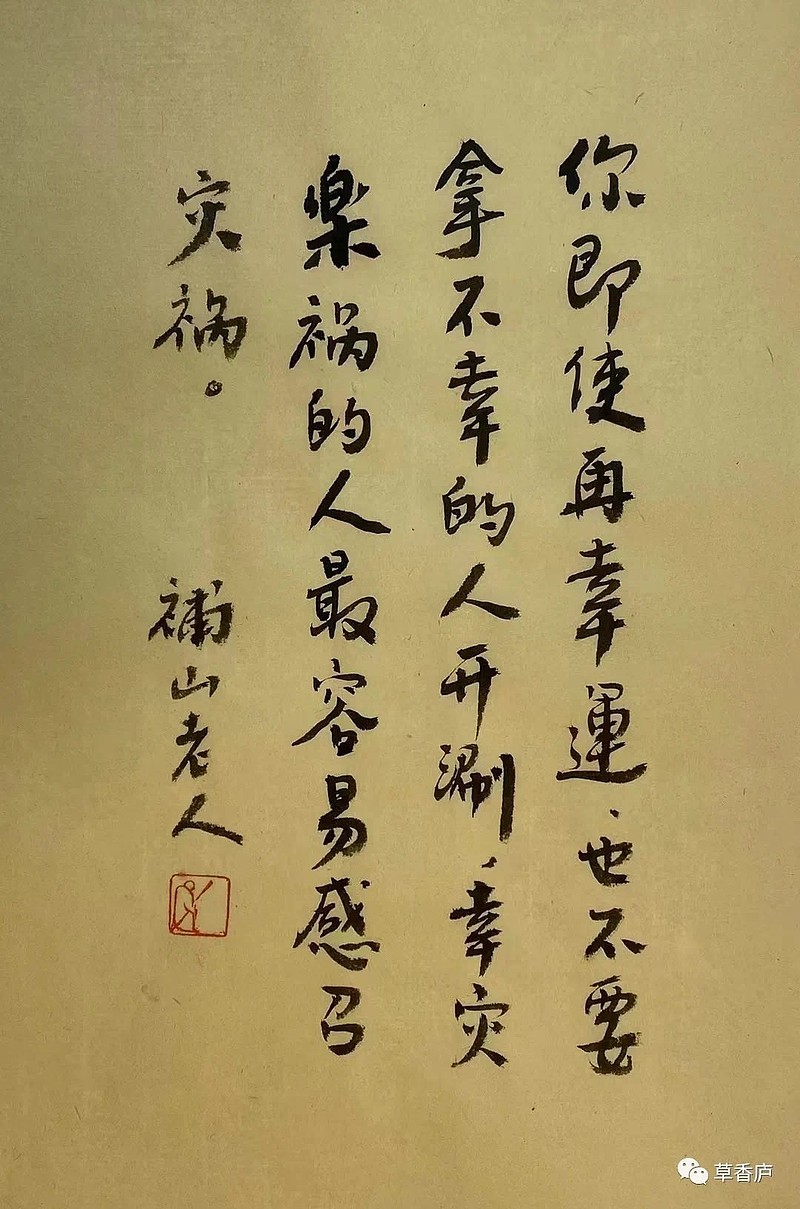 你即使再幸運、也不要
拿不幸的人开涮、幸灾
楽祸的人最容易感召
灾祸。
補山老人
草香庐